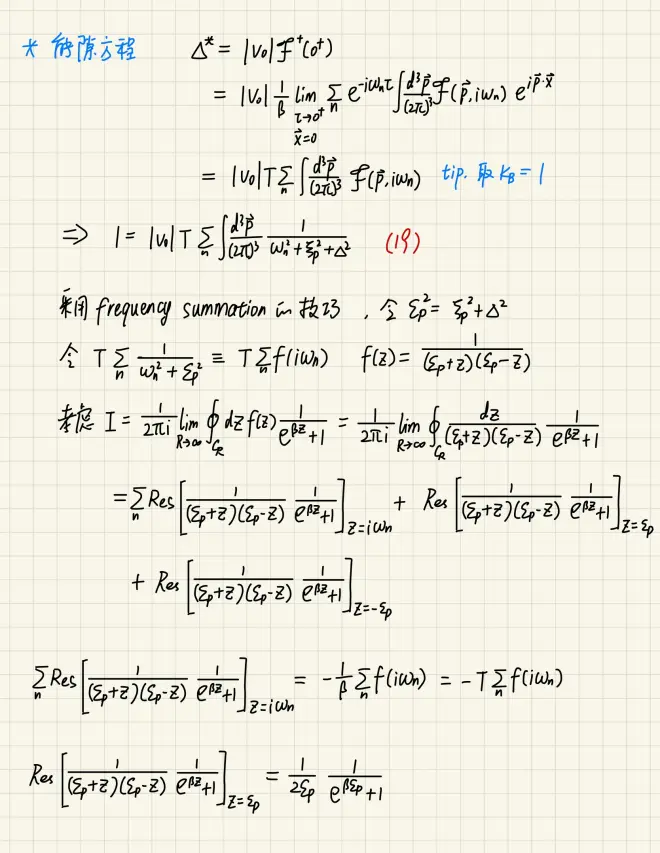 * 能隙方程 Δ* = |V₀| ℱ⁺(0⁺)
= |V₀| 1/β lim_{τ→0⁺, x⃗=0} Σ_n e^{-iωₙτ} ∫ d³p⃗/(2π)³ ℱ(p⃗, iωₙ) e^{ip⃗·x⃗}
= |V₀| T Σ_n ∫ d³p⃗/(2π)³ ℱ(p⃗, iωₙ) tip. 取 K_B = 1
⇒ 1 = |V₀| T Σ_n ∫ d³p⃗/(2π)³ 1/(ωₙ² + ξₚ² + Δ²) (19)
采用 frequency summation 的技巧, 令 Σₚ² = ξₚ² + Δ²
令 T Σ_n 1/(ωₙ² + Σₚ²) ≡ T Σ_n f(iωₙ) f(z) = 1/((Σₚ+z)(Σₚ-z))
考虑 I = 1/(2πi) lim_{R→∞} ∮_{C_R} dz f(z) 1/(e^{βz}+1) = 1/(2πi) lim_{R→∞} ∮_{C_R} dz/((Σₚ+z)(Σₚ-z)) 1/(e^{βz}+1)
= Σ_n Res[1/((Σₚ+z)(Σₚ-z)) 1/(e^{βz}+1)]_{z=iωₙ} + Res[1/((Σₚ+z)(Σₚ-z)) 1/(e^{βz}+1)]_{z=Σₚ}
+ Res[1/((Σₚ+z)(Σₚ-z)) 1/(e^{βz}+1)]_{z=-Σₚ}
Σ_n Res[1/((Σₚ+z)(Σₚ-z)) 1/(e^{βz}+1)]_{z=iωₙ} = -1/β Σ_n f(iωₙ) = -T Σ_n f(iωₙ)
Res[1/((Σₚ+z)(Σₚ-z)) 1/(e^{βz}+1)]_{z=Σₚ} = 1/(2Σₚ) 1/(e^{βΣₚ}+1)